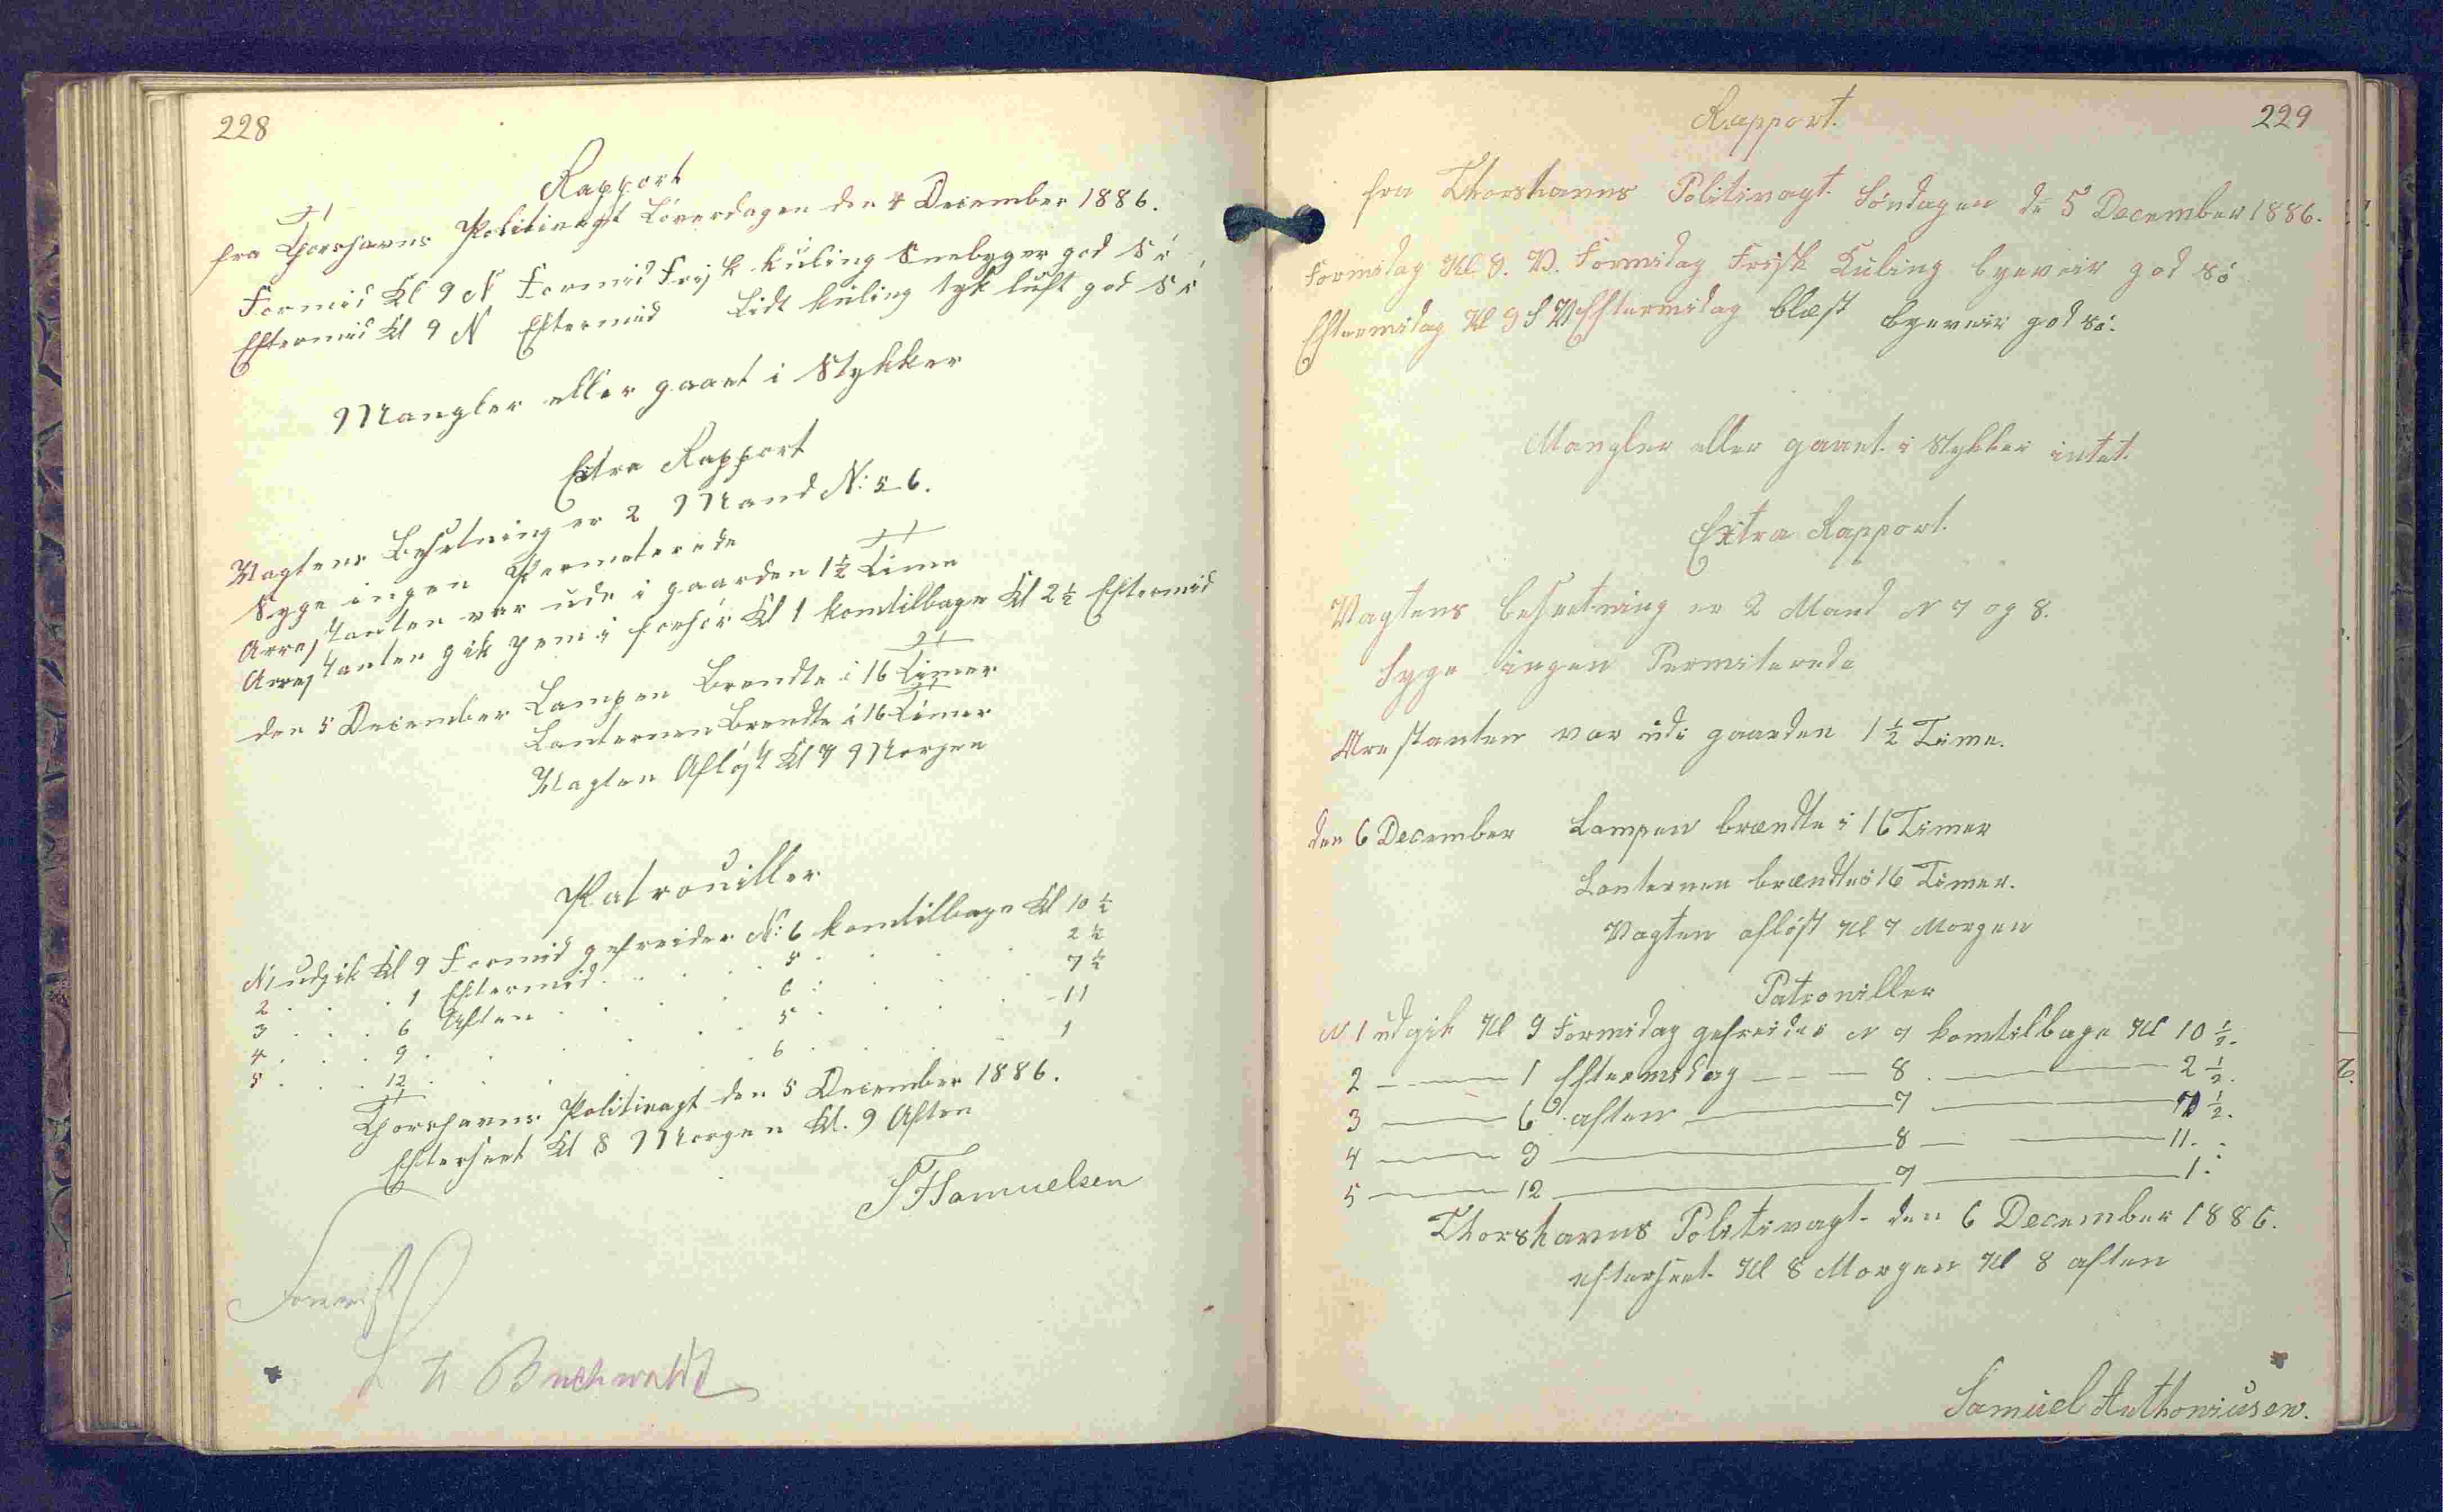 228
Rapport
fra Thorshavns Politivagt Löverdagen den 4 December 1886.
Formid Kl 9 N Formid Frisk Küling Snebyger god Sö
Eftermid Kl 9 N Eftermid Lidt küling tyk lüft god Sö
Mangler eller gaaet i Stykker
Extra Rapport
Vagtens Besetning er 2 Mand N: 5 6.
Syge ingen Permeterede
Arrestanten var ude i gaarden 1½ Time
Arrestanten gik hen i forhör Kl 1 kom tilbage Kl 2½ Eftermid
den 5 December Lampen Brendte i 16 Timer
Lanternen Brendte i 16 Timer
Vagten Aflöst Kl 7 Morgen
Patrouiller
N 1 udgik Kl 9 Formid gefreider N: 6 kom tilbage Kl 10 ½
2 . . . 1 Eftermid . . . 5 . . . 2 ½
3 . . . 6 Aften . . . 6 . . . 7 ½
4 . . . 9 . . . 5 . . . 11
5 . . . 12 . . . 6 . . . 1
Thorshavns Politivagt den 5 December 1886.
Efterseet Kl 8 Morgen Kl. 9 Aften
S F Samuelsen
Forevist
Buchwaldt
229
Rapport.
fra Thorshavns Politivagt. Söndagen d 5 December 1886.
Formidag Kl 9. V. Formidag Frisk Küling byeveir god Sö
Eftermidag Kl 9 S V Eftermidag blæst byeveir god Sö.
Mangler eller gaaet i Stykker intet.
Extra Rapport.
Vagtens besætning er 2 Mand N 7 og 8.
Syge ingen Permiterede
Arestanten var üdi gaarden 1 ½ Time.
den 6 December Lampen brændte i 16 Timer
Lanternen brændte i 16 Timer.
Vagten afløst Kl 7 Morgen
Patrouiller
N 1 üdgik Kl 9 Formidag gefreider N 7 kom tilbage Kl 10 ½.
2 — 1 Eftermidag — 8 — 2 ½.
3 — 6 aften — 7 — 7 ½.
4 — 9 — 8 — 11.
5 — 12 — 7 — 1.
Thorshavns Politivagt. den 6 December 1886.
efterseet. Kl 8 Morgen Kl 8 aften
Samüel Anthoniüsen.